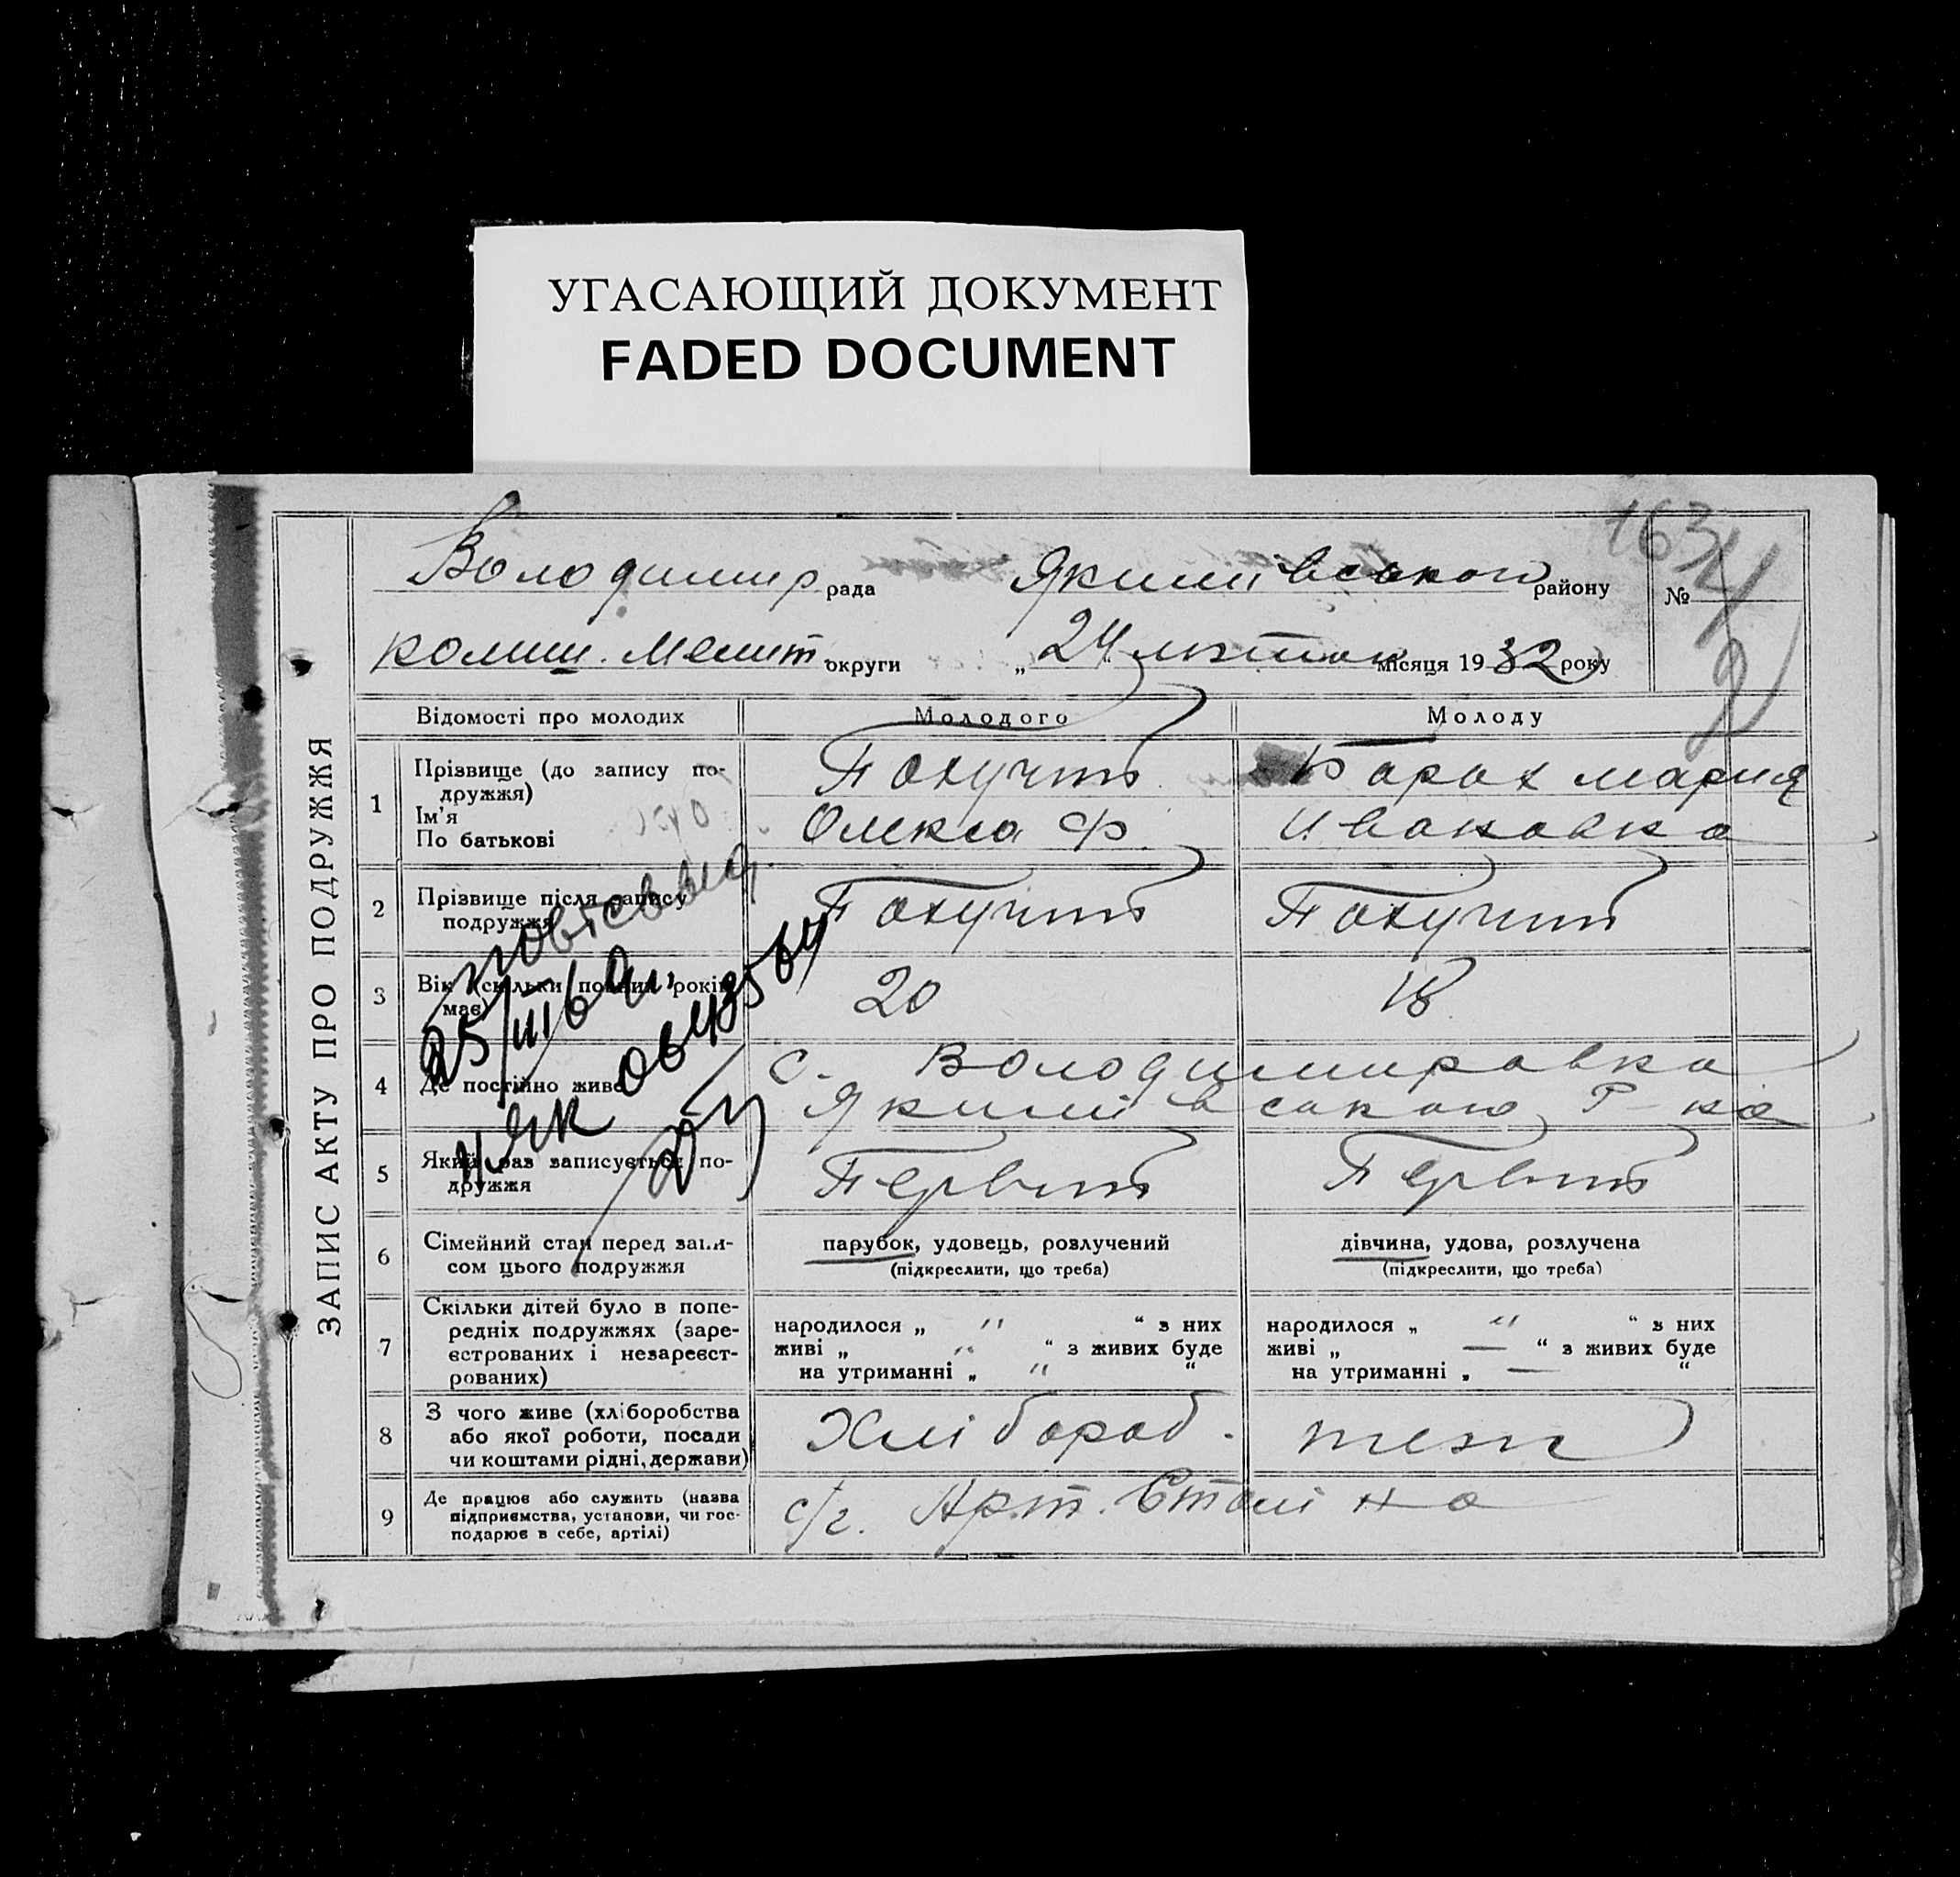 УГАСАЮЩИЙ ДОКУМЕНТ
FADED DOCUMENT
163
ЗАПИС АКТУ ПРО ПОДРУЖЖЯ
Володимир рада Якимівського району №
колиш. Мелит округи „24 люток місяця 1932 року
Відомості про молодих Молодого Молоду
1 Прізвище (до запису по-
дружжя)
Ім'я
По батькові
Похучит
Олекса Ф.
Барах Мария
Ивановна
2 Прізвище після запису
подружжя
Похучит Похучит
3 Вік (скільки повних років
має)
20 18
4 Де постійно живе
с. Володимировка
Якимівського Р-на
5 Який раз записується по-
дружжя
Первит Первит
25/III 64
6 Сімейний стан перед запи-
сом цього подружжя
парубок, удовець, розлучений
(підкреслити, що треба)
дівчина, удова, розлучена
(підкреслити, що треба)
7 Скільки дітей було в попе-
редніх подружжях (заре-
єстрованих і незареєст-
рованих)
народилося „ " “ з них
живі „ " “ з живих буде
на утриманні „ " “
народилося „ " “ з них
живі „ — “ з живих буде
на утриманні „ — “
8 З чого живе (хліборобства
або якої роботи, посади
чи коштами рідні, держави)
Хлібороб. теж
9 Де працює або служить (назва
підприємства, установи, чи гос-
подарює в себе, артілі)
с/г. Арт. Сталіна